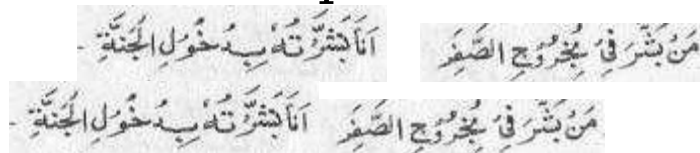 مَنْ بَشَّرَنِیْ بِخُرُوْجِ الصَّفَرِ اَنَا بَشَّرْتُهٗ بِدُخُوْلِ الْجَنَّةِ -
مَنْ بَشَّرَنِیْ بِخُرُوْجِ الصَّفَرِ اَنَا بَشَّرْتُهٗ بِدُخُوْلِ الْجَنَّةِ -